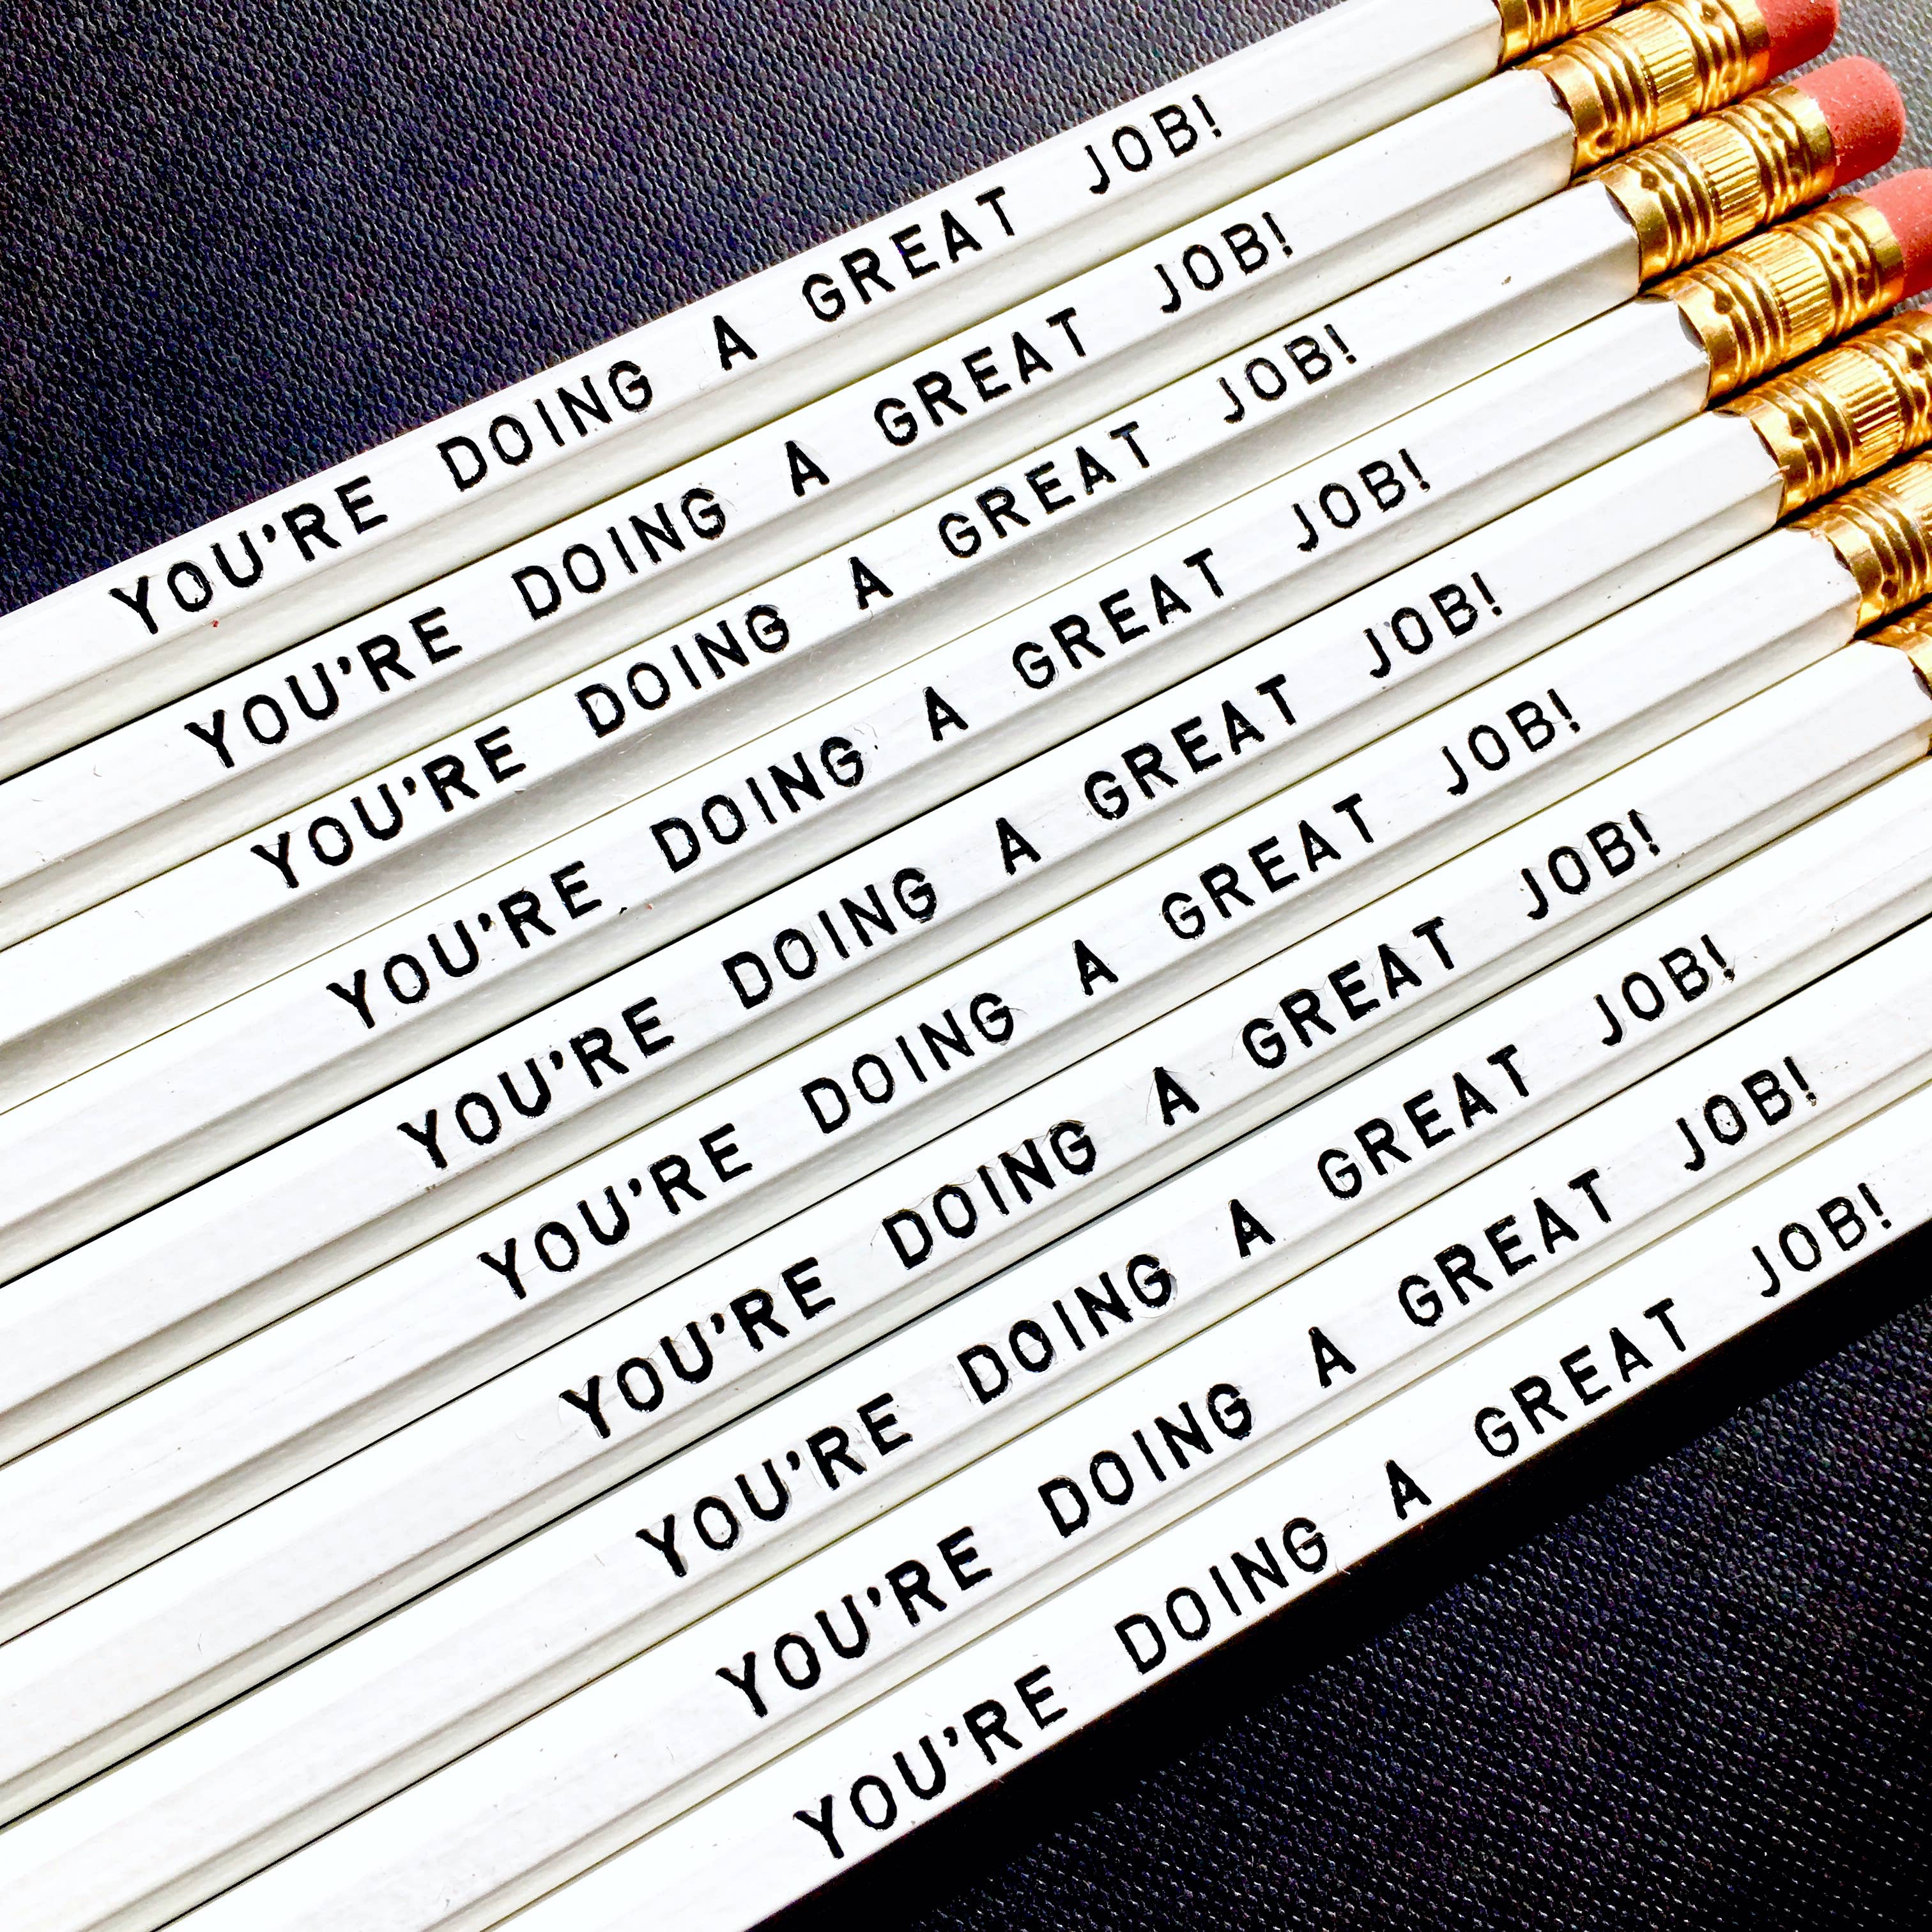 YOU'RE DOING A GREAT JOB!
YOU'RE DOING A GREAT JOB!
YOU'RE DOING A GREAT JOB!
YOU'RE DOING A GREAT JOB!
YOU'RE DOING A GREAT JOB!
YOU'RE DOING A GREAT JOB!
YOU'RE DOING A GREAT JOB!
YOU'RE DOING A GREAT JOB!
YOU'RE DOING A GREAT JOB!
YOU'RE DOING A GREAT JOB!